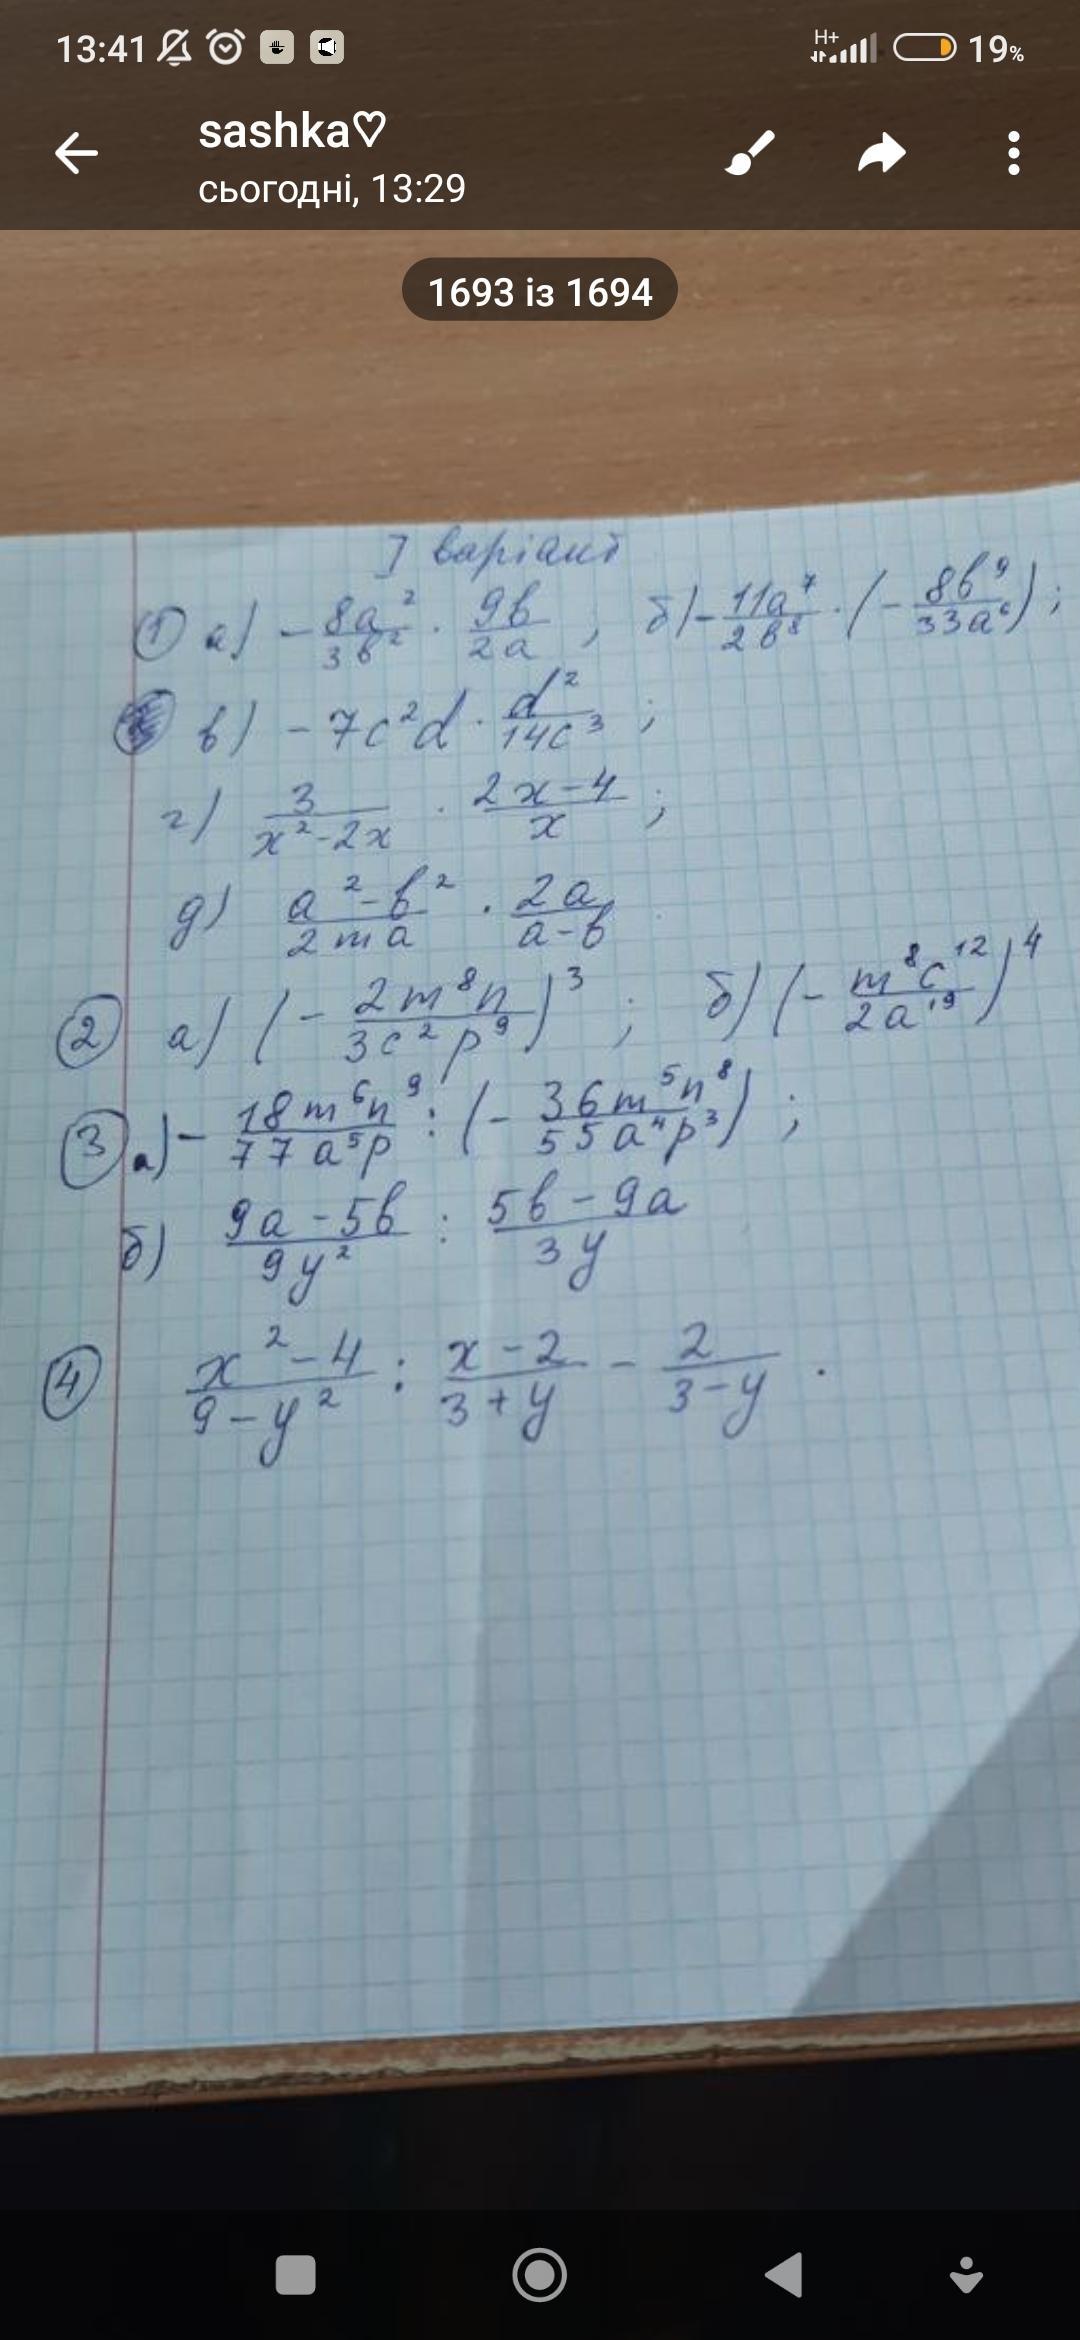 13:41 H+ 19%
sashka♡
сьогодні, 13:29
1693 із 1694
I варіант
① а) - 8a²/3b² · 9b/2a ; б) - 11a⁷/2b⁸ · (- 8b⁹/33a⁶) ;
в) - 7c²d · d²/14c³ ;
г) 3/x²-2x · 2x-4/x ;
д) a²-b²/2ma · 2a/a-b
② а) (- 2m⁸n/3c²p⁹)³ ; б) (- m⁸c¹²/2a¹⁹)⁴
③ а) - 18m⁶n⁹/77a⁵p : (- 36m⁵n⁸/55a⁴p³) ;
б) 9a-5b/9y² : 5b-9a/3y
④ x²-4/9-y² : x-2/3+y - 2/3-y .